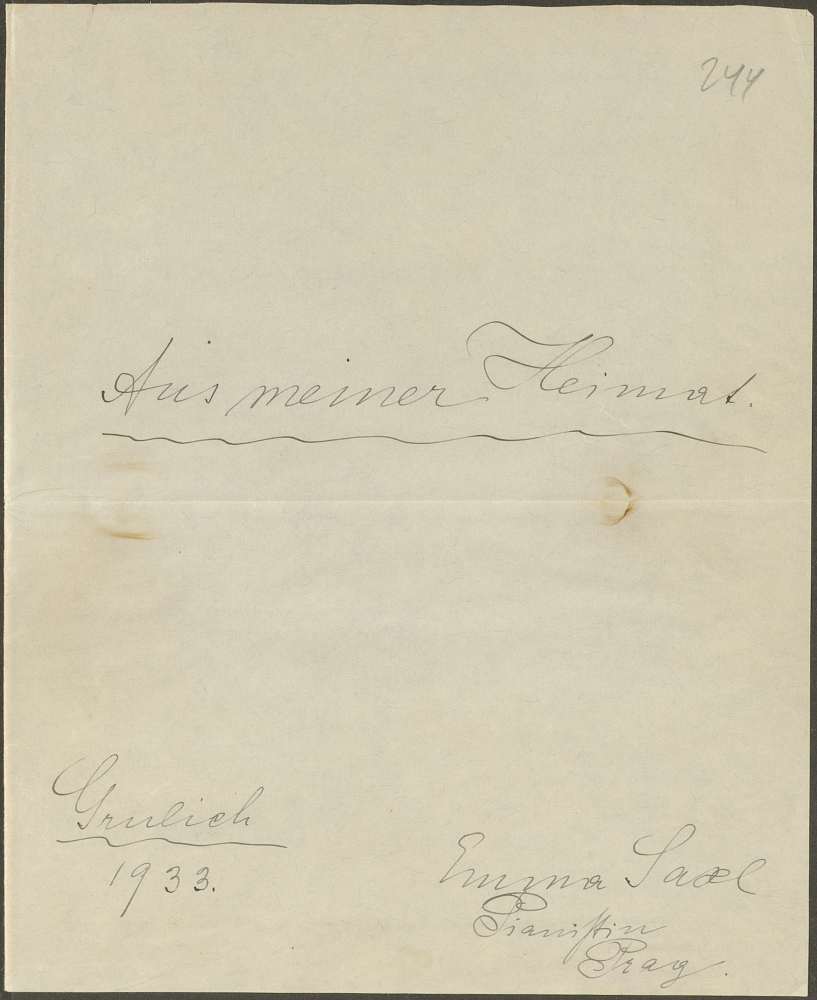 244
Aus meiner Heimat.
Grulich
1933.
Emma Saxl
Pianistin
Prag.